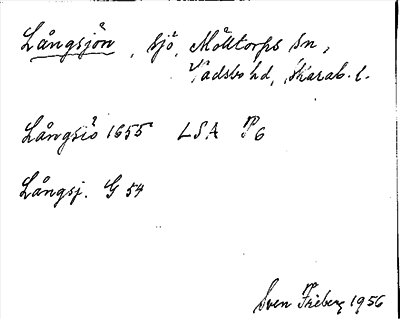 Långsjön, sjö, Mölltorps sn,
Vadsbo hd, Skarab. l.
Långsiö 1655 LSA P6
Långsj. G 54
Sven Friberg 1956